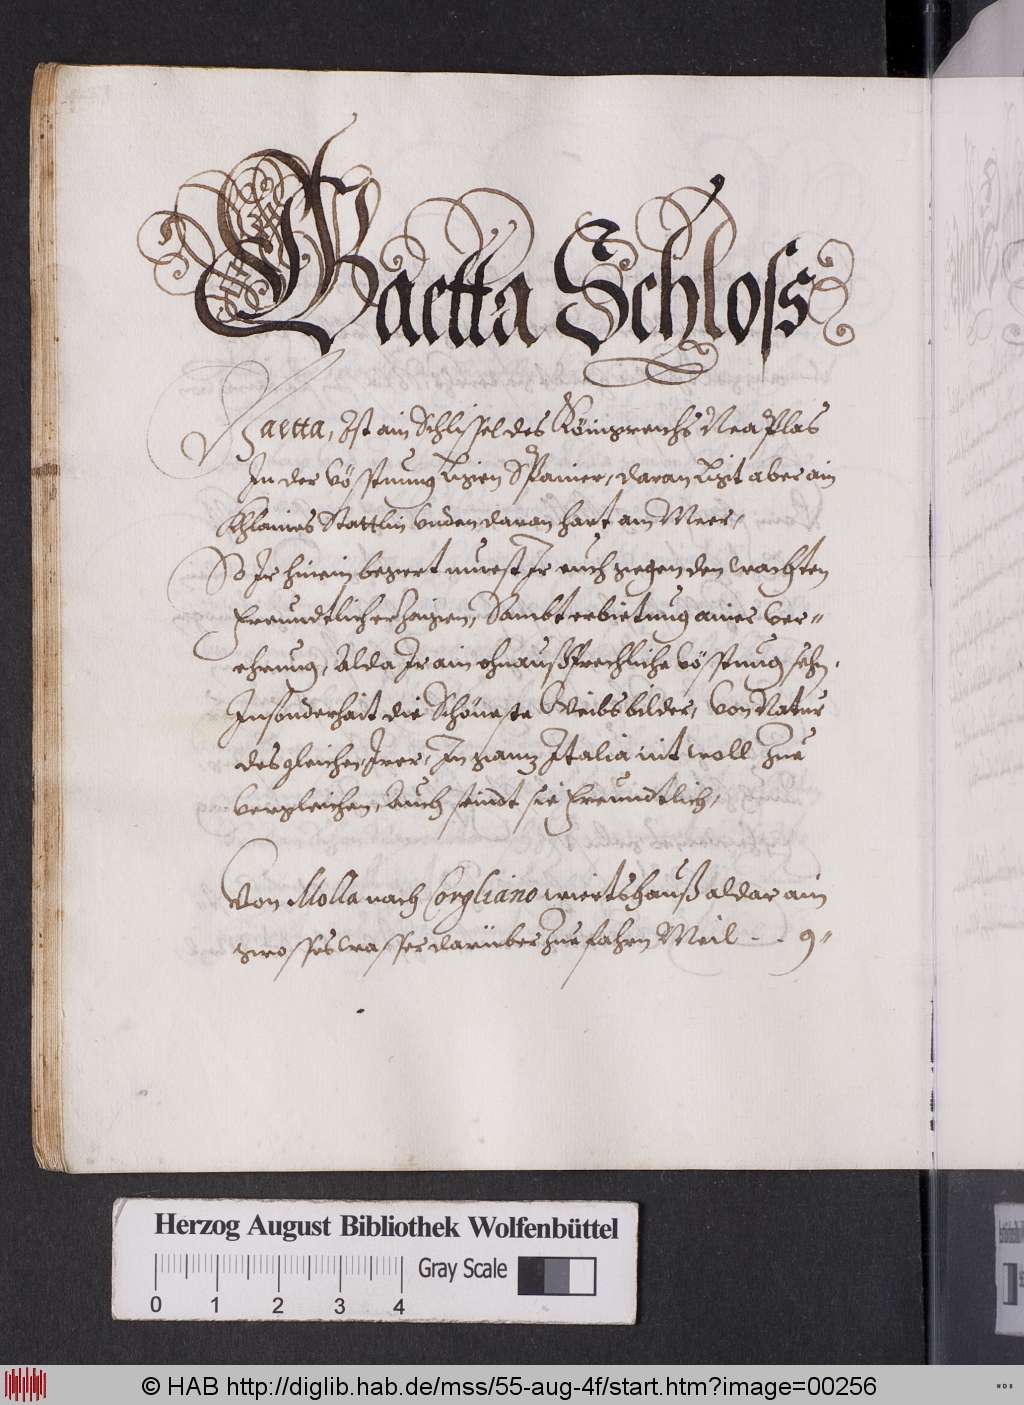 Gaetta Schloss
Gaetta, Ist ain Schlissel des Königreichs Neaplas
In der Vösstnung ligen Spanier, daran ligt aber ain
Khlaines Stättlin vnden daran hart am Meer,
So Ir hinein begert muest Ir euch gegen den wachten
Freundtlich erzaigen, Sambt erbietung ainer Ver-
ehrung, Alda Ir ain ohnaußsprechliche Vösstnung sehn,
Insonderhait die Schöneste Weibsbilder, von Natur
desgleichen Irer, In gantz Italia nit woll Zue
vergleichen, Auch seindt sie Freundtlich,
Von Molla nach Corgliano wiertshauß aldar ain
grosses wasser darüber Zue fahrn Meil - . 9"
Herzog August Bibliothek Wolfenbüttel
Gray Scale
0 1 2 3 4
© HAB http://diglib.hab.de/mss/55-aug-4f/start.htm?image=00256